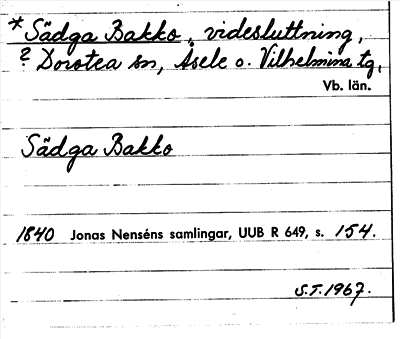 *Sädga Bakko, videsluttning,
? Dorotea sn, Åsele o. Vilhelmina tg,
Vb. län.
Sädga Bakko
1840 Jonas Nenséns samlingar, UUB R 649, s. 154.
S.T. 1967.